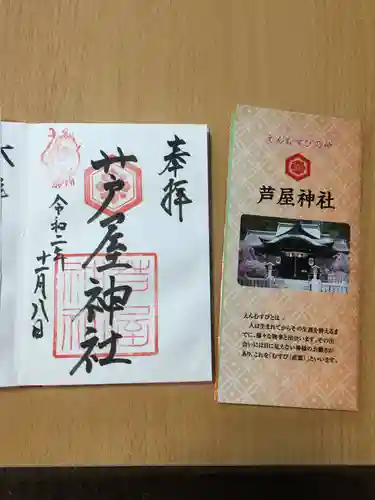 奉拝
芦屋神社
令和二年
十一月八日
えんむすびの神
芦屋神社
えんむすびとは
人は生まれてからその生涯を終えるま
でに、様々な物事と出会います。その出
会いには目に見えない神様のお働きが
あり、これを「むすび(産霊)」といいます。